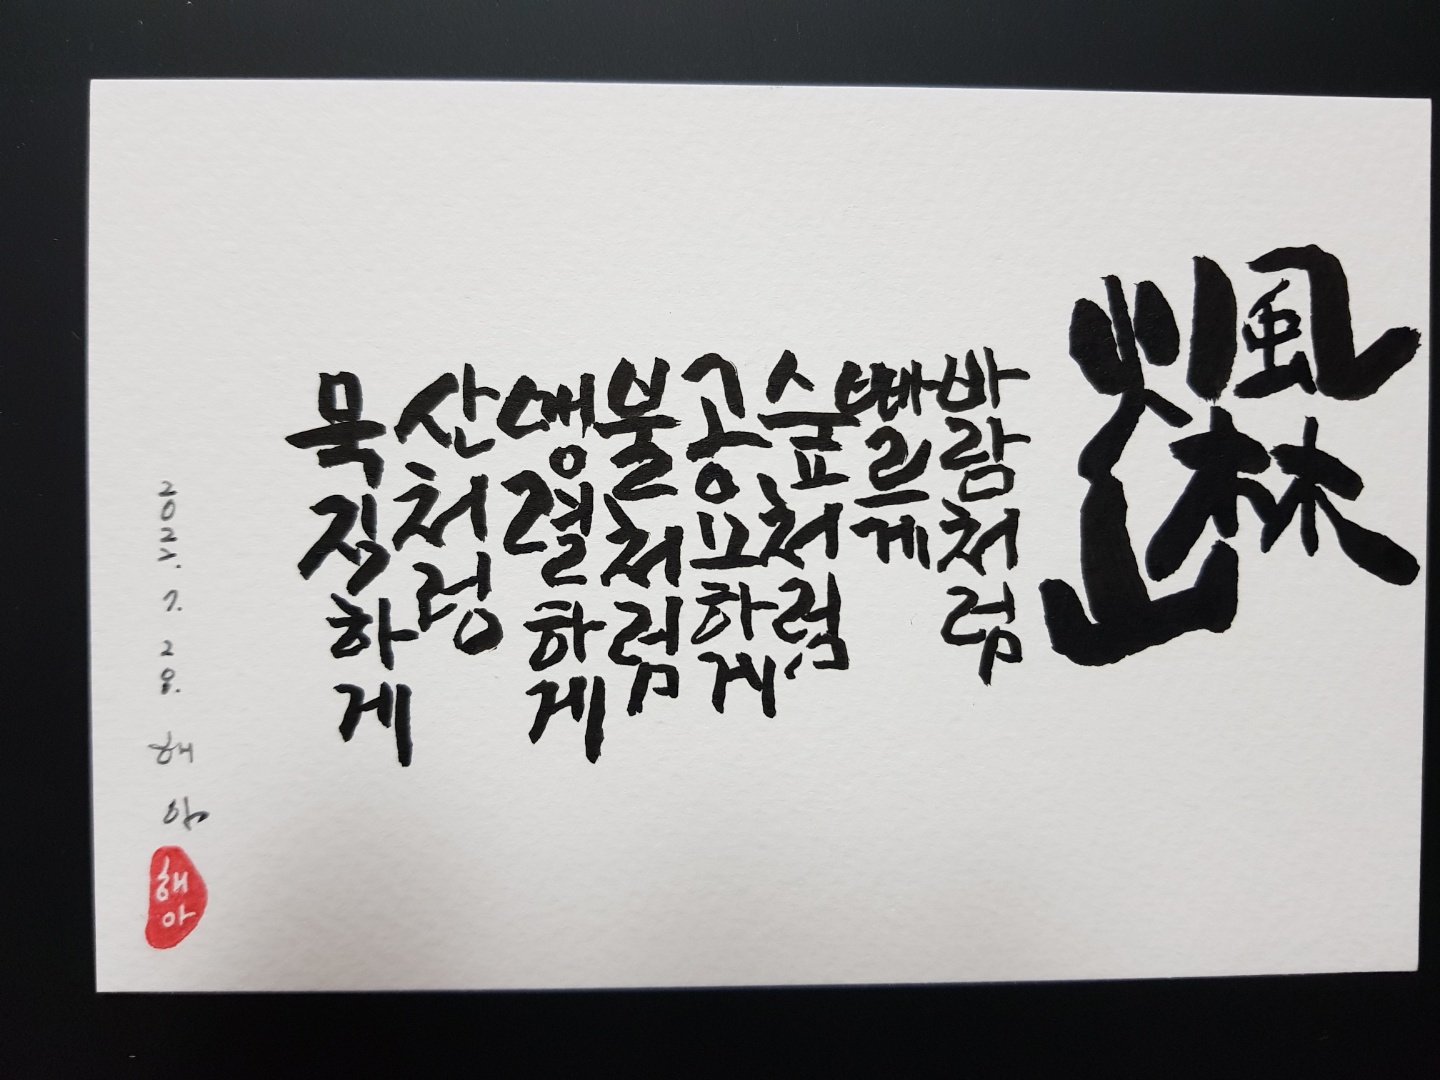 風林火山
바람처럼
빠르게
숲처럼
고요하게
불처럼
맹렬하게
산처럼
묵직하게
2022. 7. 28. 해아
해아